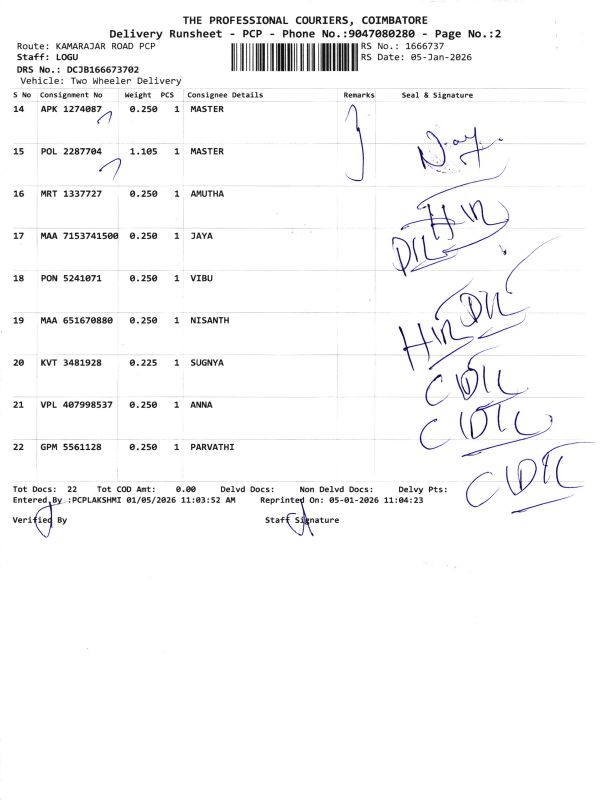 THE PROFESSIONAL COURIERS, COIMBATORE
Delivery Runsheet - PCP - Phone No.:9047080280 - Page No.:2
Route: KAMARAJAR ROAD PCP RS No.: 1666737
Staff: LOGU RS Date: 05-Jan-2026
DRS No.: DCJB166673702
Vehicle: Two Wheeler Delivery
S No Consignment No Weight PCS Consignee Details Remarks Seal & Signature
14 APK 1274087 0.250 1 MASTER
15 POL 2287704 1.105 1 MASTER
16 MRT 1337727 0.250 1 AMUTHA
17 MAA 7153741500 0.250 1 JAYA
18 PON 5241071 0.250 1 VIBU
19 MAA 651670880 0.250 1 NISANTH
20 KVT 3481928 0.225 1 SUGNYA
21 VPL 407998537 0.250 1 ANNA
22 GPM 5561128 0.250 1 PARVATHI
Tot Docs: 22 Tot COD Amt: 0.00 Delvd Docs: Non Delvd Docs: Delvy Pts:
Entered By :PCPLAKSHMI 01/05/2026 11:03:52 AM Reprinted On: 05-01-2026 11:04:23
Verified By Staff Signature